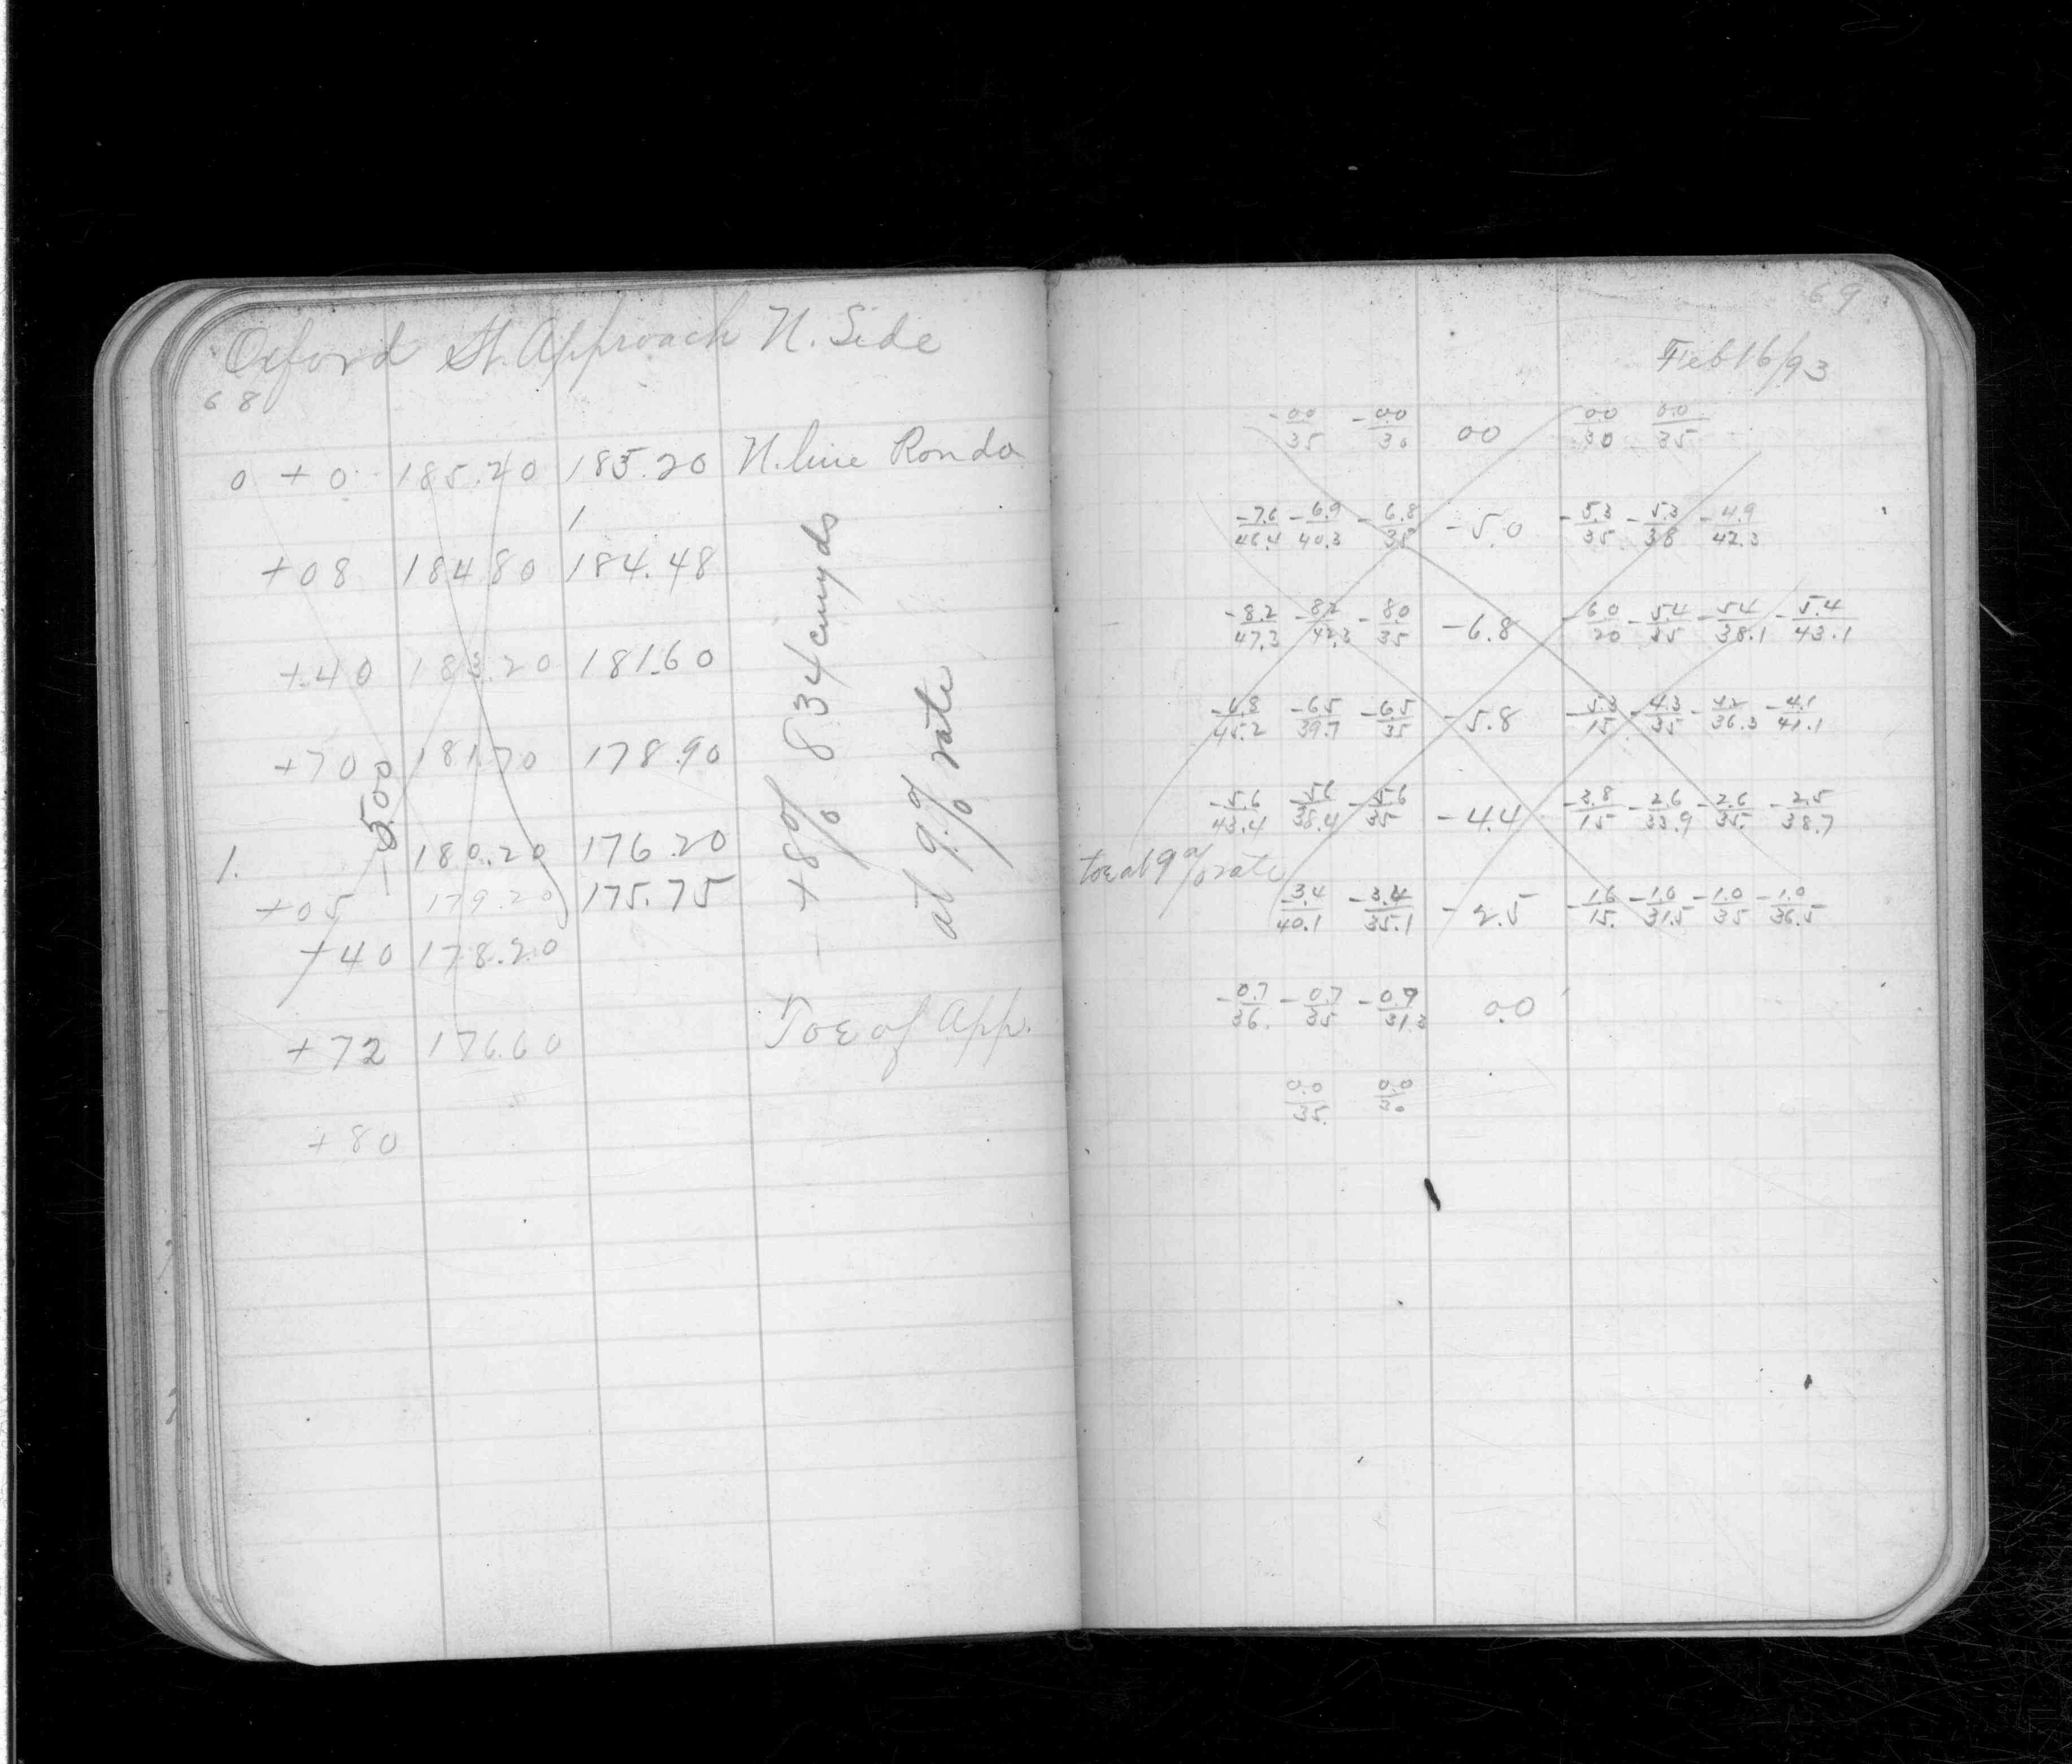 Oxford St. Approach N. Side
68
0 + 0 185.20 185.20 N. line Rondo
1
+08 184.80 184.48
+40 183.20 181.60
+70 181.70 178.90
1. 180.20 176.20
+05 179.20 175.75
+40 178.20
+72 176.60 Toe of App.
+80
-5.00
+8% 834 cu yds
at 9.% rate
69
Feb 16/93
-0.0/35 -0.0/30 00 0.0/30 0.0/35
-7.6/46.4 -6.9/40.3 -6.8/35 -5.0 -5.3/35 -5.3/38 -4.9/42.3
-8.2/47.3 -8.2/42.3 -8.0/35 -6.8 -6.0/20 -5.4/35 -5.4/38.1 -5.4/43.1
-6.8/45.2 -6.5/39.7 -6.5/35 -5.8 -5.3/15 -4.3/35 -4.2/36.3 -4.1/41.1
-5.6/43.4 -5.6/38.4 -5.6/35 -4.4 -3.8/15 -2.6/33.9 -2.6/35. -2.5/38.7
toe at 9% rate
-3.4/40.1 -3.4/35.1 -2.5 -1.6/15. -1.0/31.5 -1.0/35 -1.0/36.5
-0.7/36. -0.7/35 -0.7/31.3 0.0
0.0/35. 0.0/30